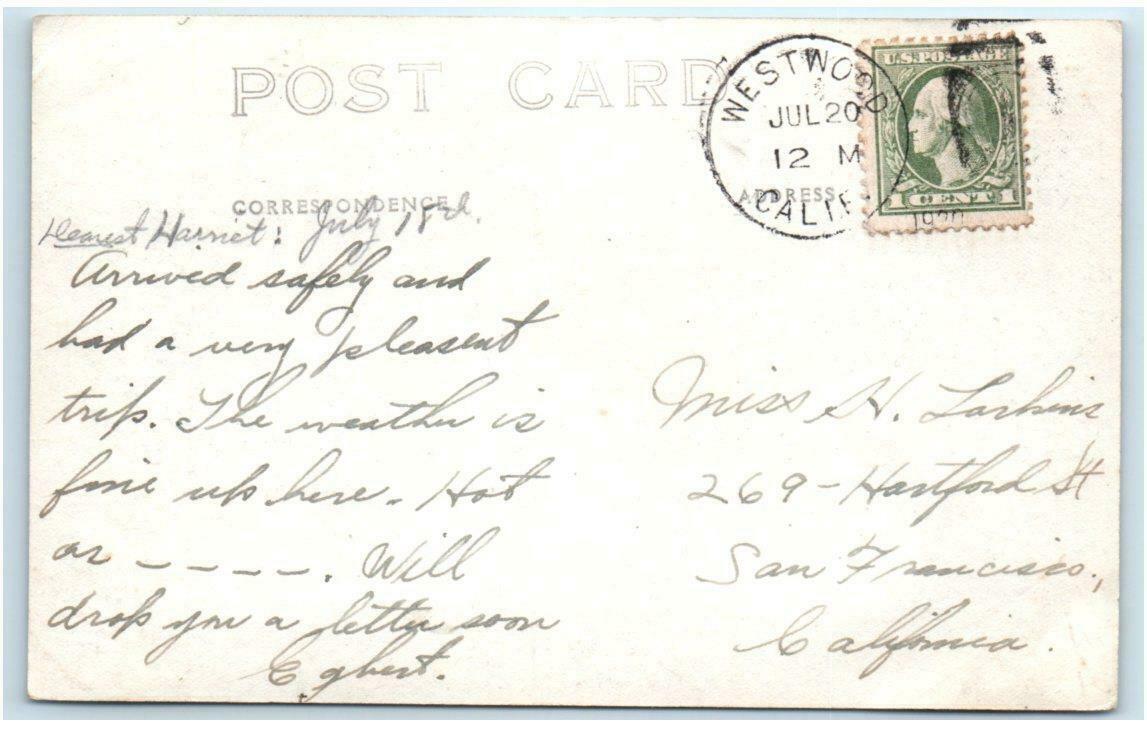 POST CARD
WESTWOOD
JUL 20
12 M
CALIF
U.S. POSTAGE
1 CENT 1
CORRESPONDENCE
ADDRESS
Dearest Harriet: July 18th.
Arrived safely and
had a very pleasent
trip. The weather is
fine up here. Hot
as _ _ _ _ _. Will
drop you a letter soon
Egbert.
Miss H. Larkins
269 - Hartford St
San Francisco,
California.